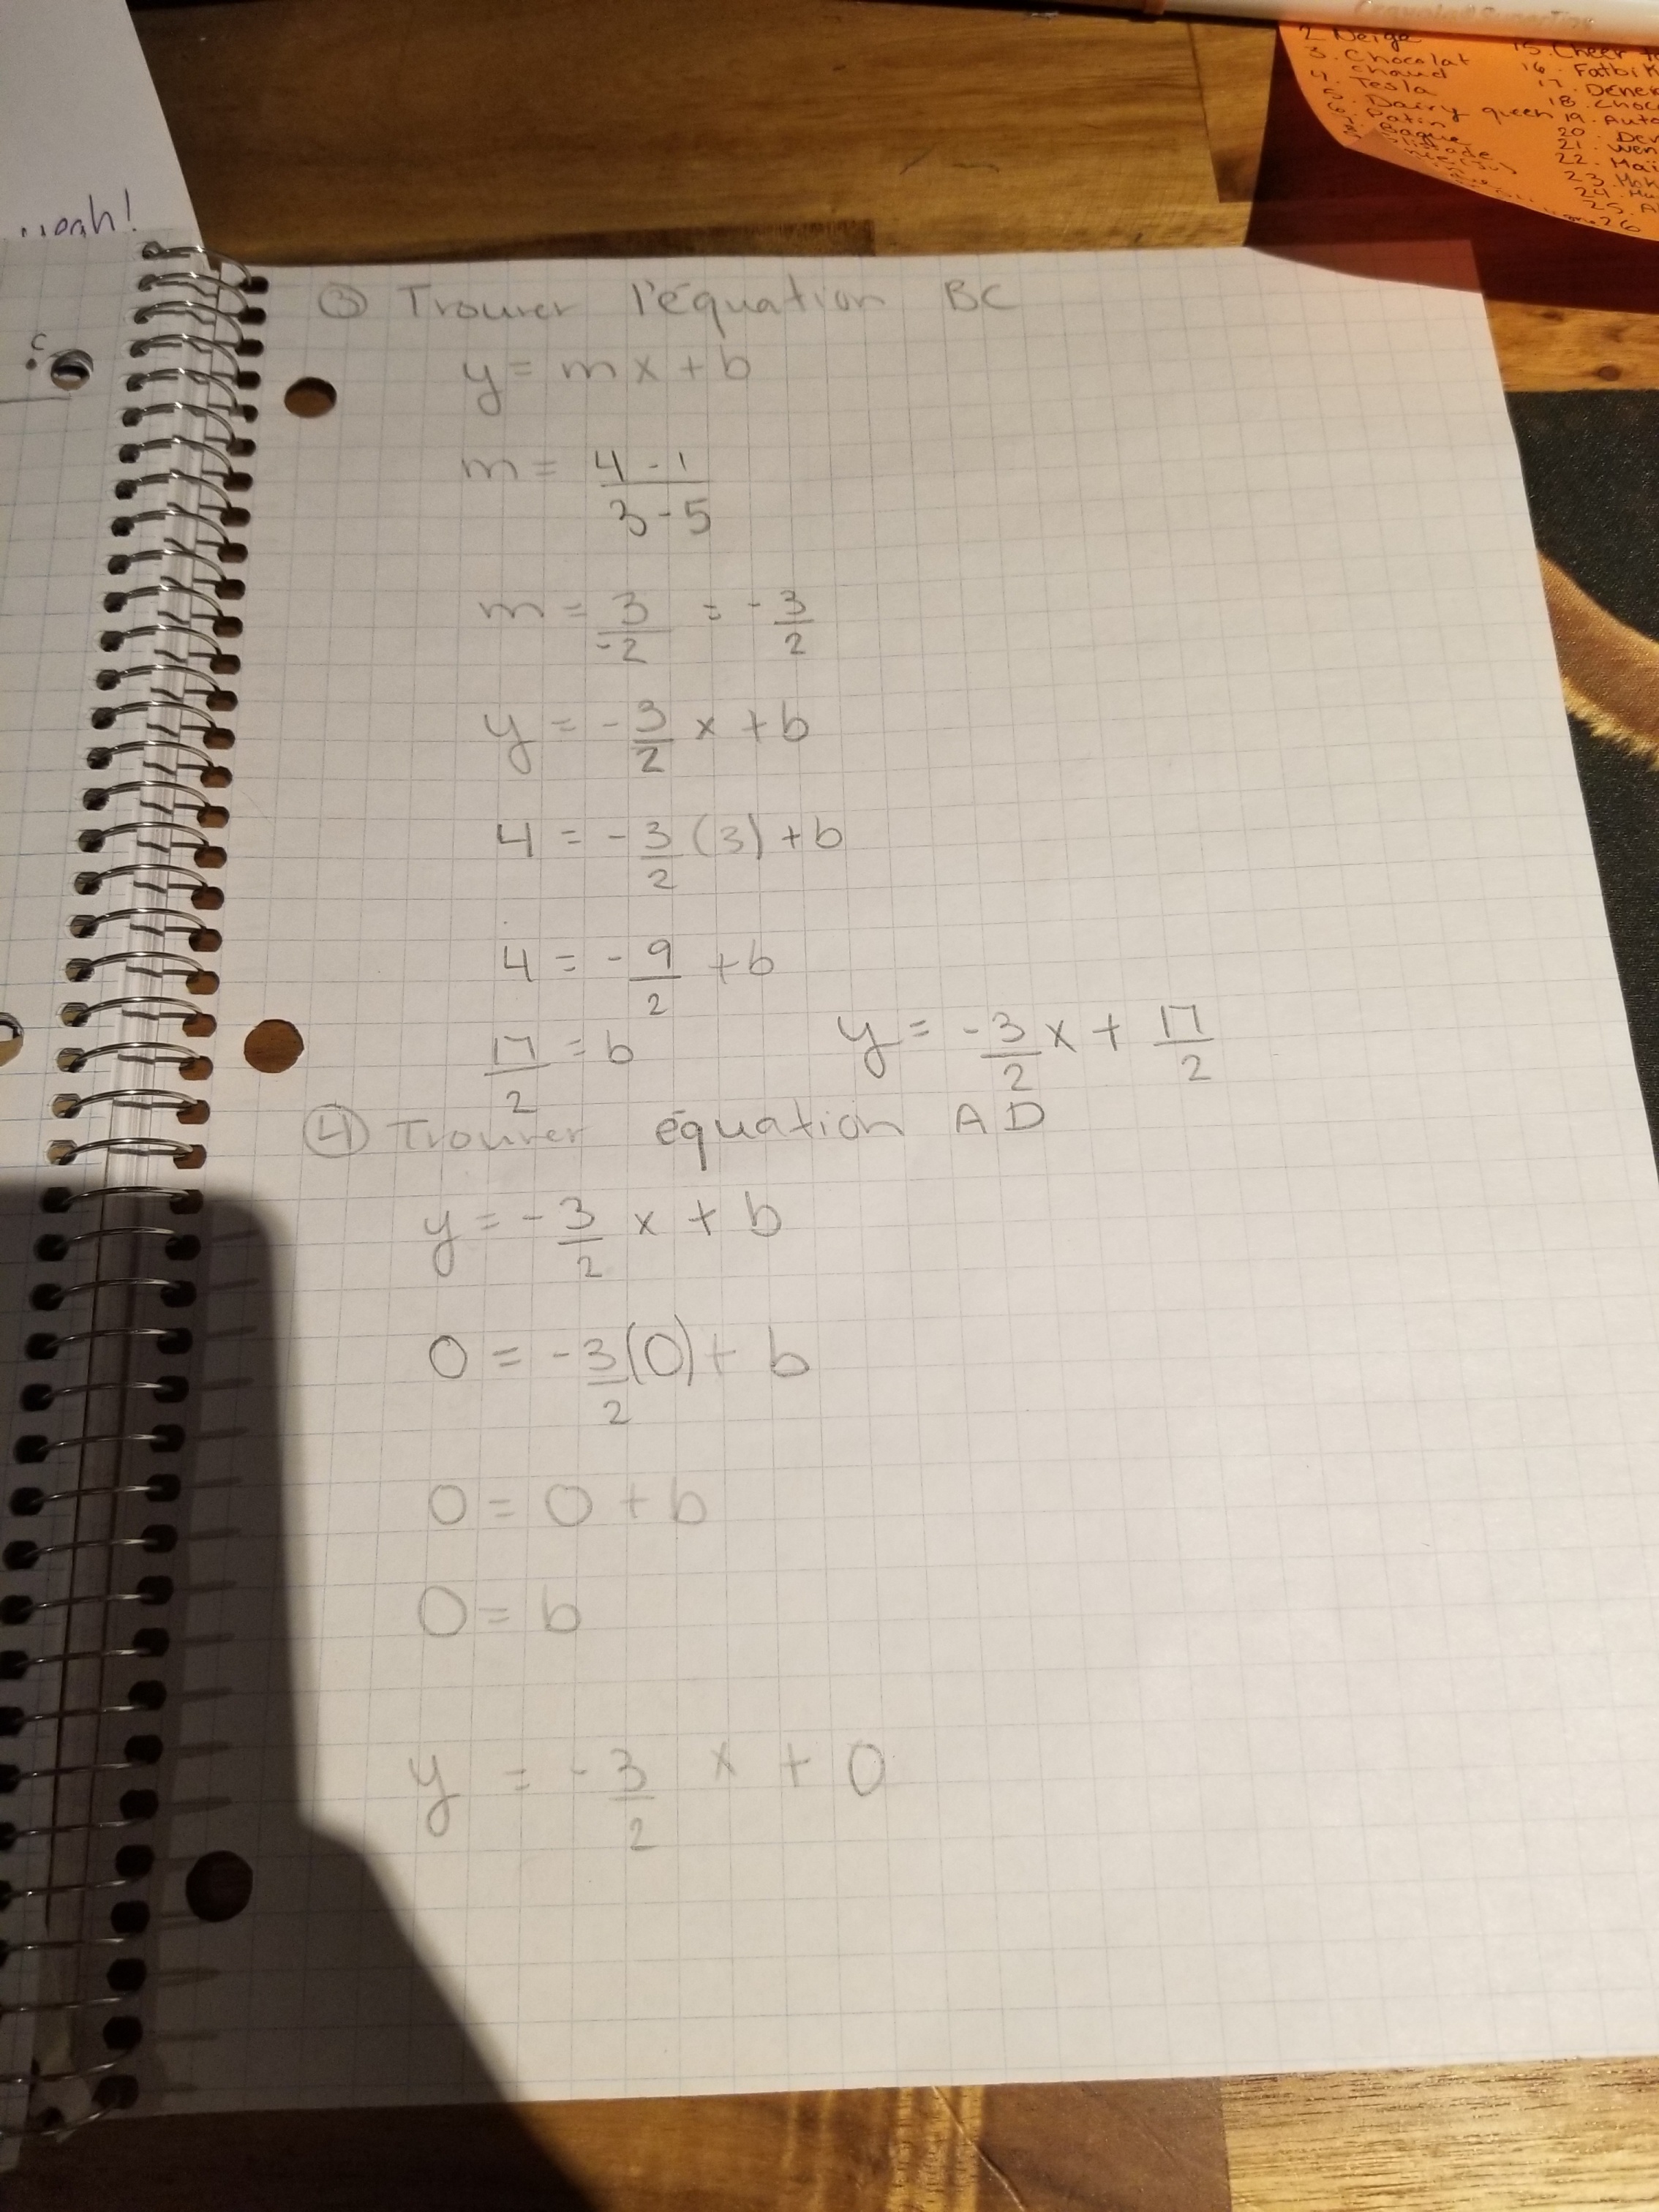 Crayola SuperTips
2 Neige
3. Chocolat
chaud
4. Tesla
5. Dairy queen
6. Patin
15. Cheer
16. Fatbik
17.
18. Choc
19. Auto
20.
21. Wen
22. Mai
23.
24.
25. A
26
oah!
c
③ Trouver l'équation BC
y = mx + b
m = 4 - 1 / 3 - 5
m = 3/-2 = -3/2
y = -3/2 x + b
4 = -3/2 (3) + b
4 = -9/2 + b
17/2 = b
y = -3/2 x + 17/2
④ Trouver équation AD
y = -3/2 x + b
0 = -3/2 (0) + b
0 = 0 + b
0 = b
y = -3/2 x + 0